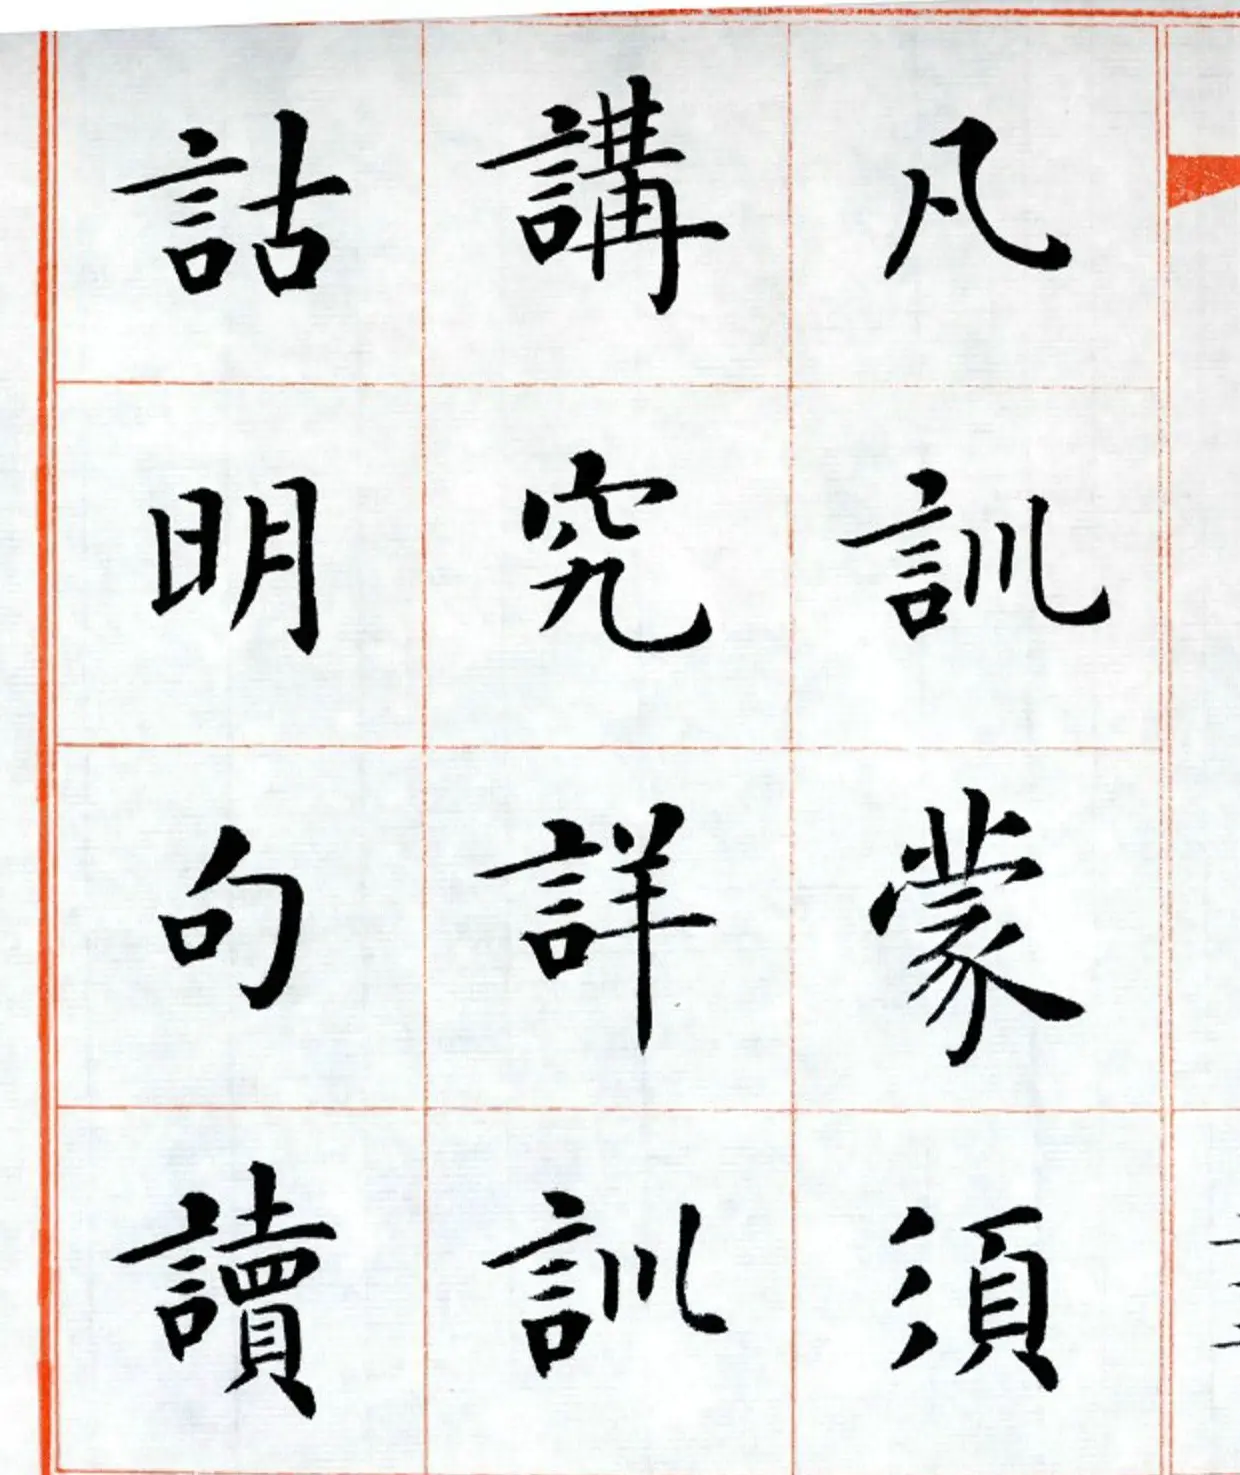 凡訓蒙須
講究詳訓
詁明句讀